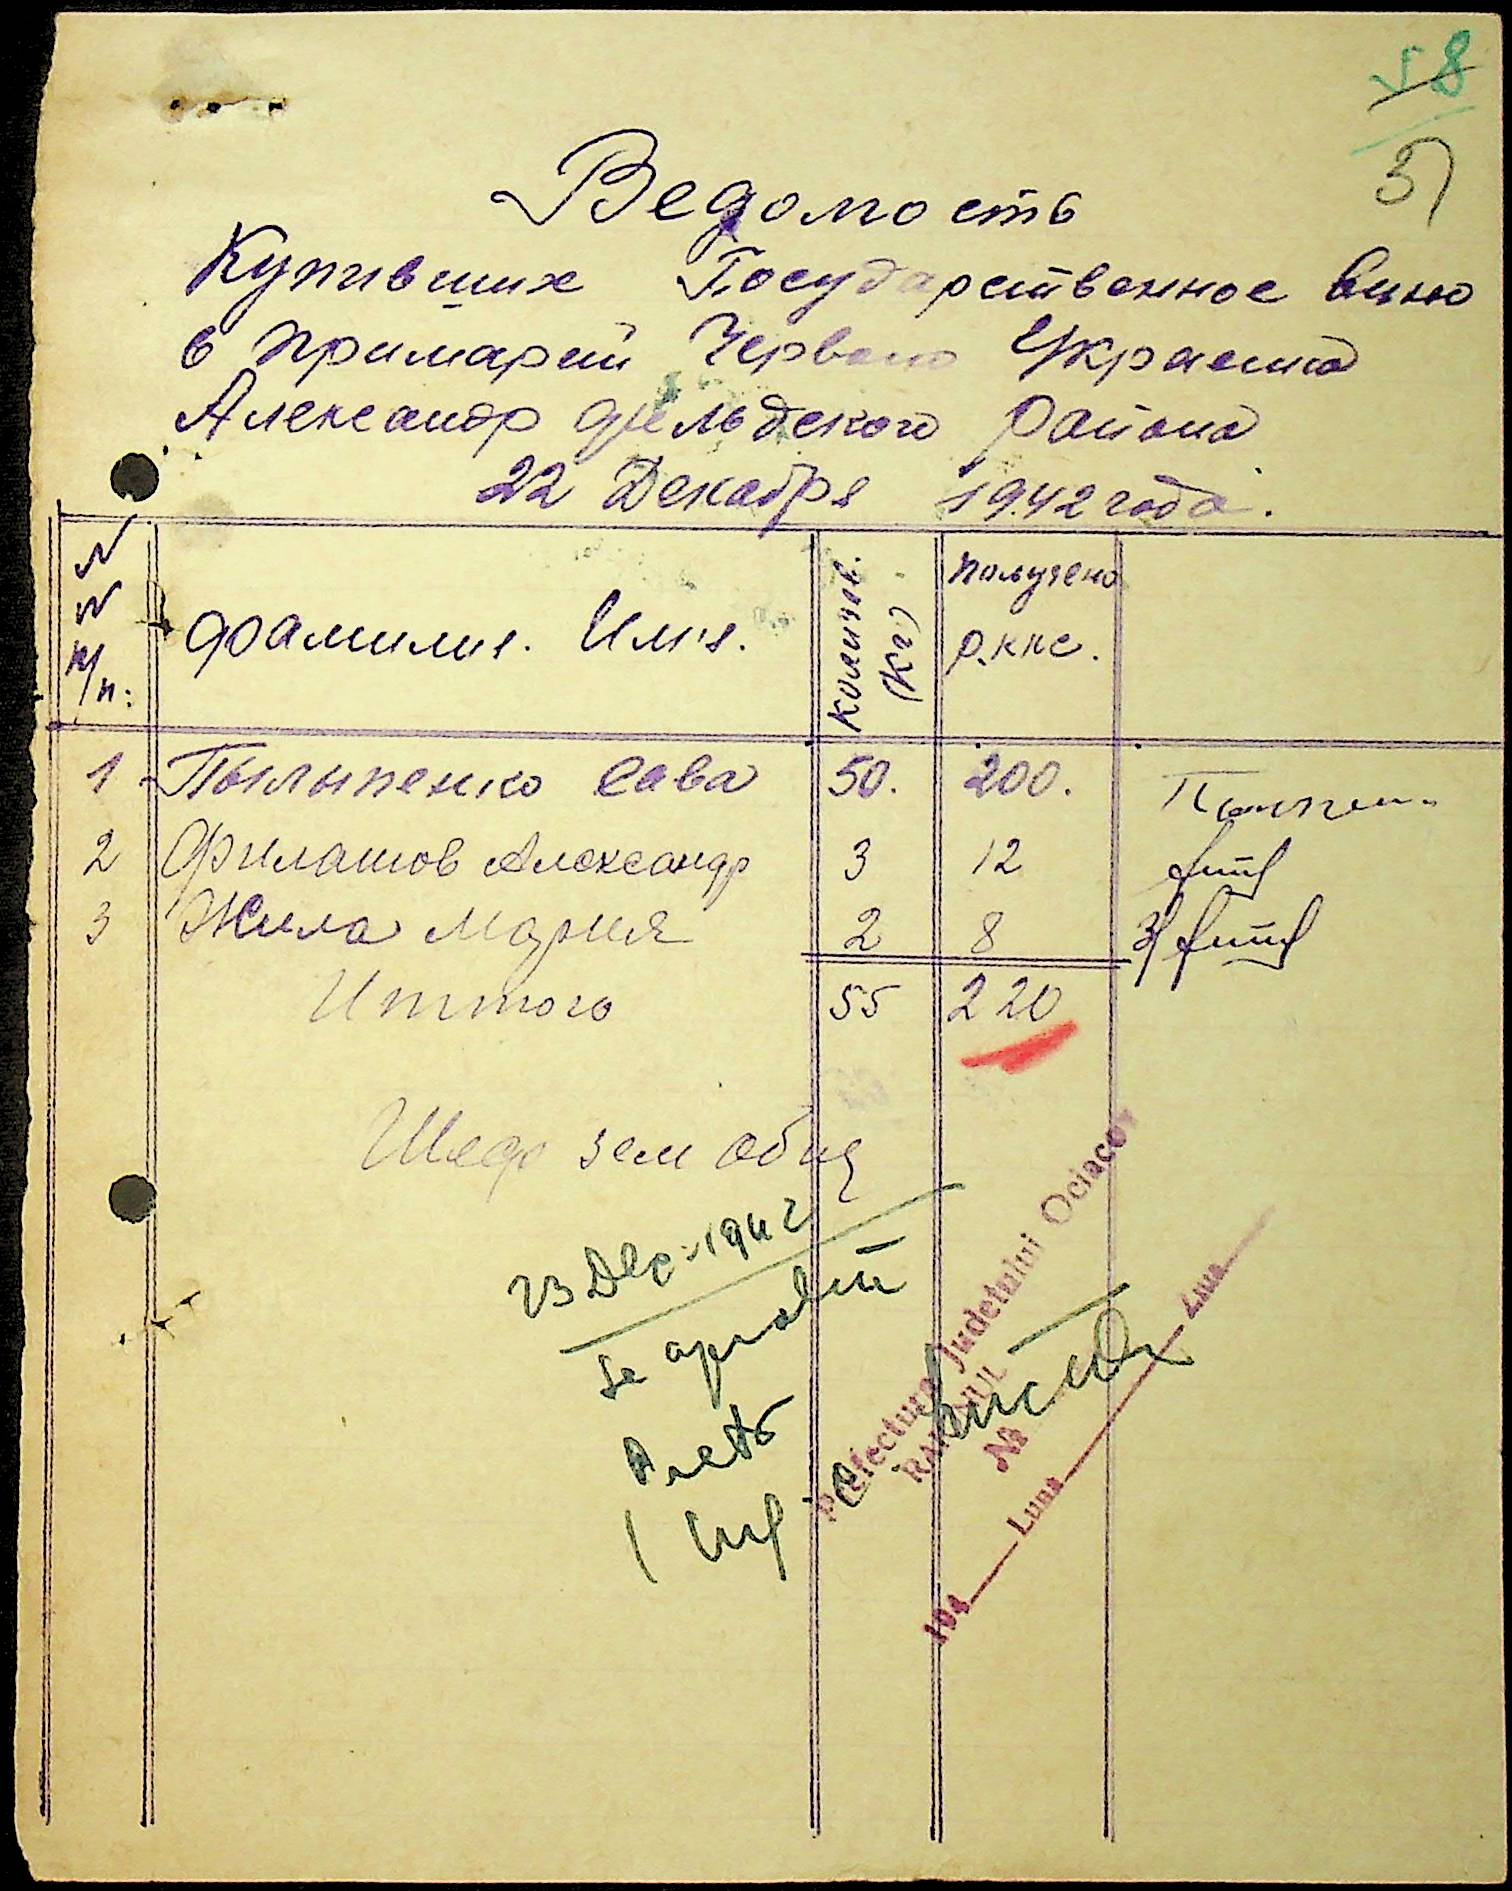 58
Ведомость
Купивших Государственное вино
в примарей Червона Украина
Александрфельдского Района
22 Декабря 1942 года.
№ № п/п. Фамилия. Имя. Количев. (кг) Получено р.кпс.
1 Пылыпенко Сава 50. 200.
2 Филатов Александр 3 12
3 Жила Мария 2 8
Иттого 55 220
Шеф зем общ
23 Dec 1942
se aprobă
Pretor
Prefectura Judetului Ociacov
RAIONUL
№
194 Luna Ziua